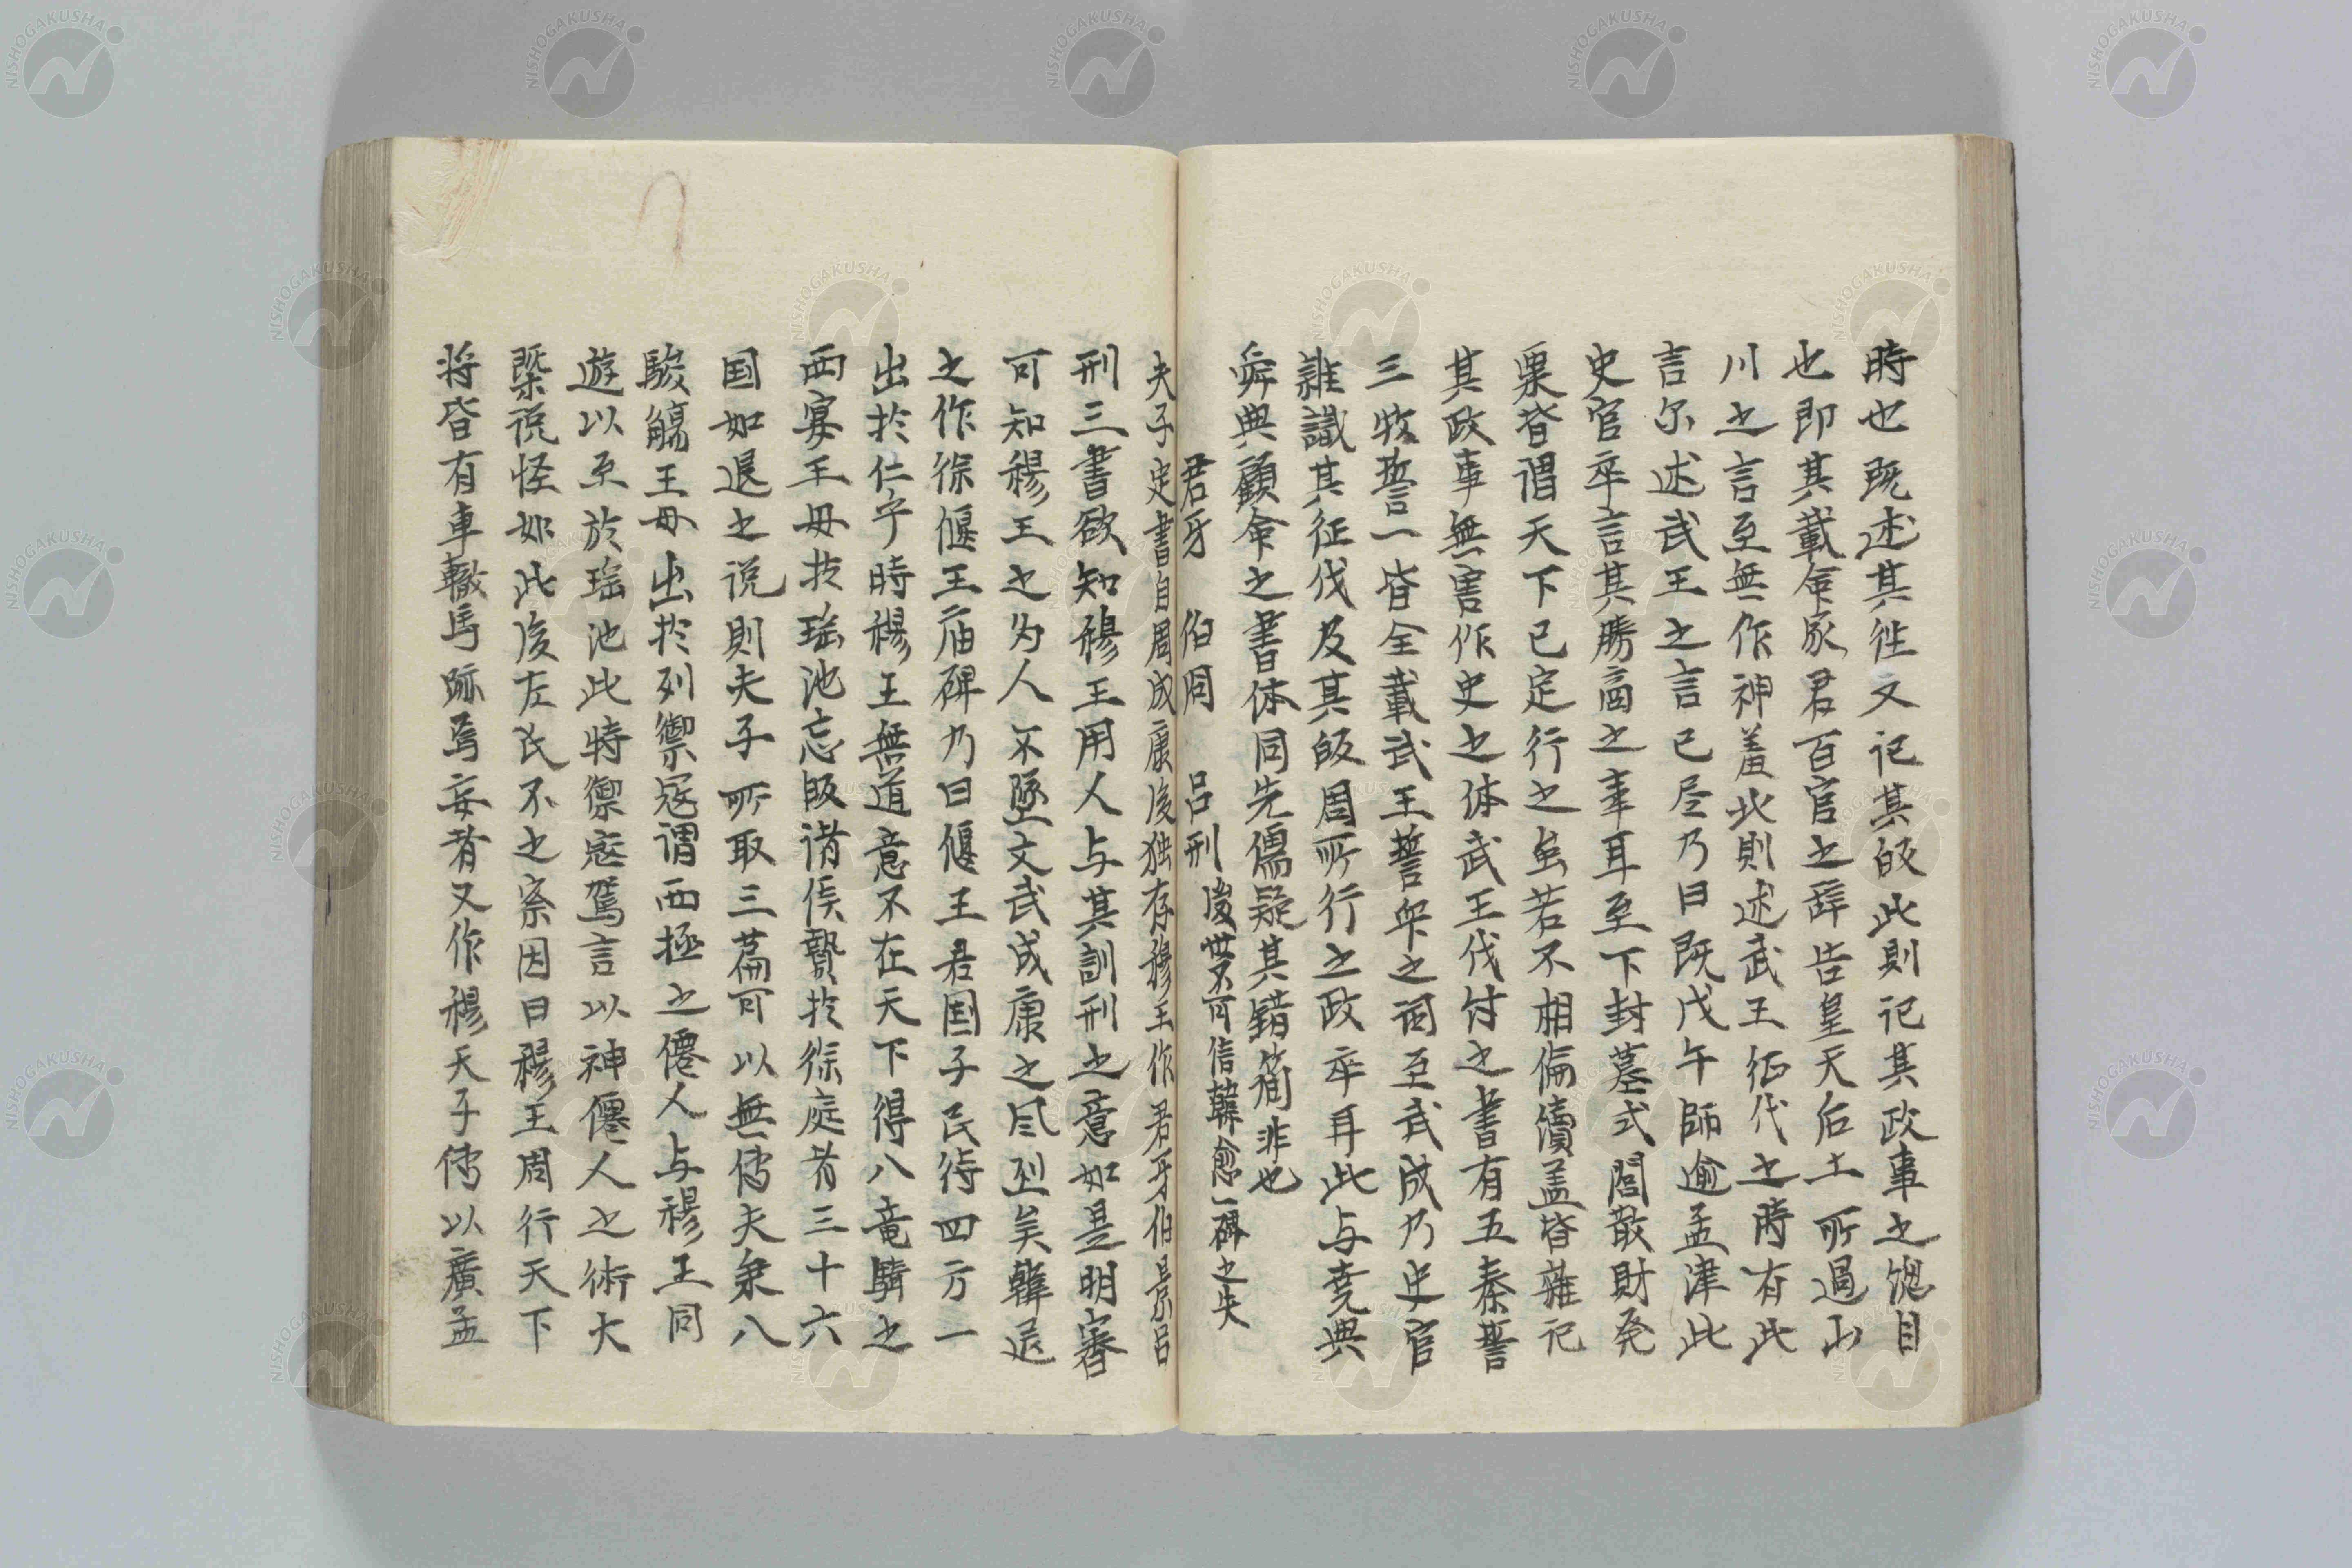 時也既述其徃又記其皈此則記其政事之惣目
也即其載命冢君百官之辞告皇天后土所過山
川之言至無作神羞此則述武王征伐之時有此
言尓述武王之言已尽乃曰既戊午師逾孟津此
史官卒言其勝商之事耳至下封墓式閭散財発
粟皆謂天下已定行之虽若不相倫續盖皆雜記
其政事無害作史之体武王伐紂之書有五泰誓
三牧誓一皆全載武王誓衆之词至武成乃史官
雜識其征伐及其皈周所行之政卒耳此与尭典
舜典顧命之書体同先儒疑其錯簡非也
君牙　伯冏　吕刑　後世不可信韓愈一碑之失
夫子定書自周成康後独存穆王作君牙伯景吕
刑三書欲知穆王用人与其訓刑之意如是明審
可知穆王之为人不墜文武成康之风烈矣韓退
之作徐偃王庙碑乃曰偃王君国子民待四方一
出扵仁字時穆王無道意不在天下得八竜騎之
西宴王母扵瑶池忘皈诸侯贄扵徐庭者三十六
国如退之说則夫子所取三篇可以無傳夫乘八
駿觴王母出扵列禦寇謂西極之僊人与穆王同
遊以至於瑶池此特禦寇駕言以神僊人之術大
槩说怪如此後左氏不之察因曰穆王周行天下
将皆有車轍馬跡焉妄者又作穆天子傳以廣孟